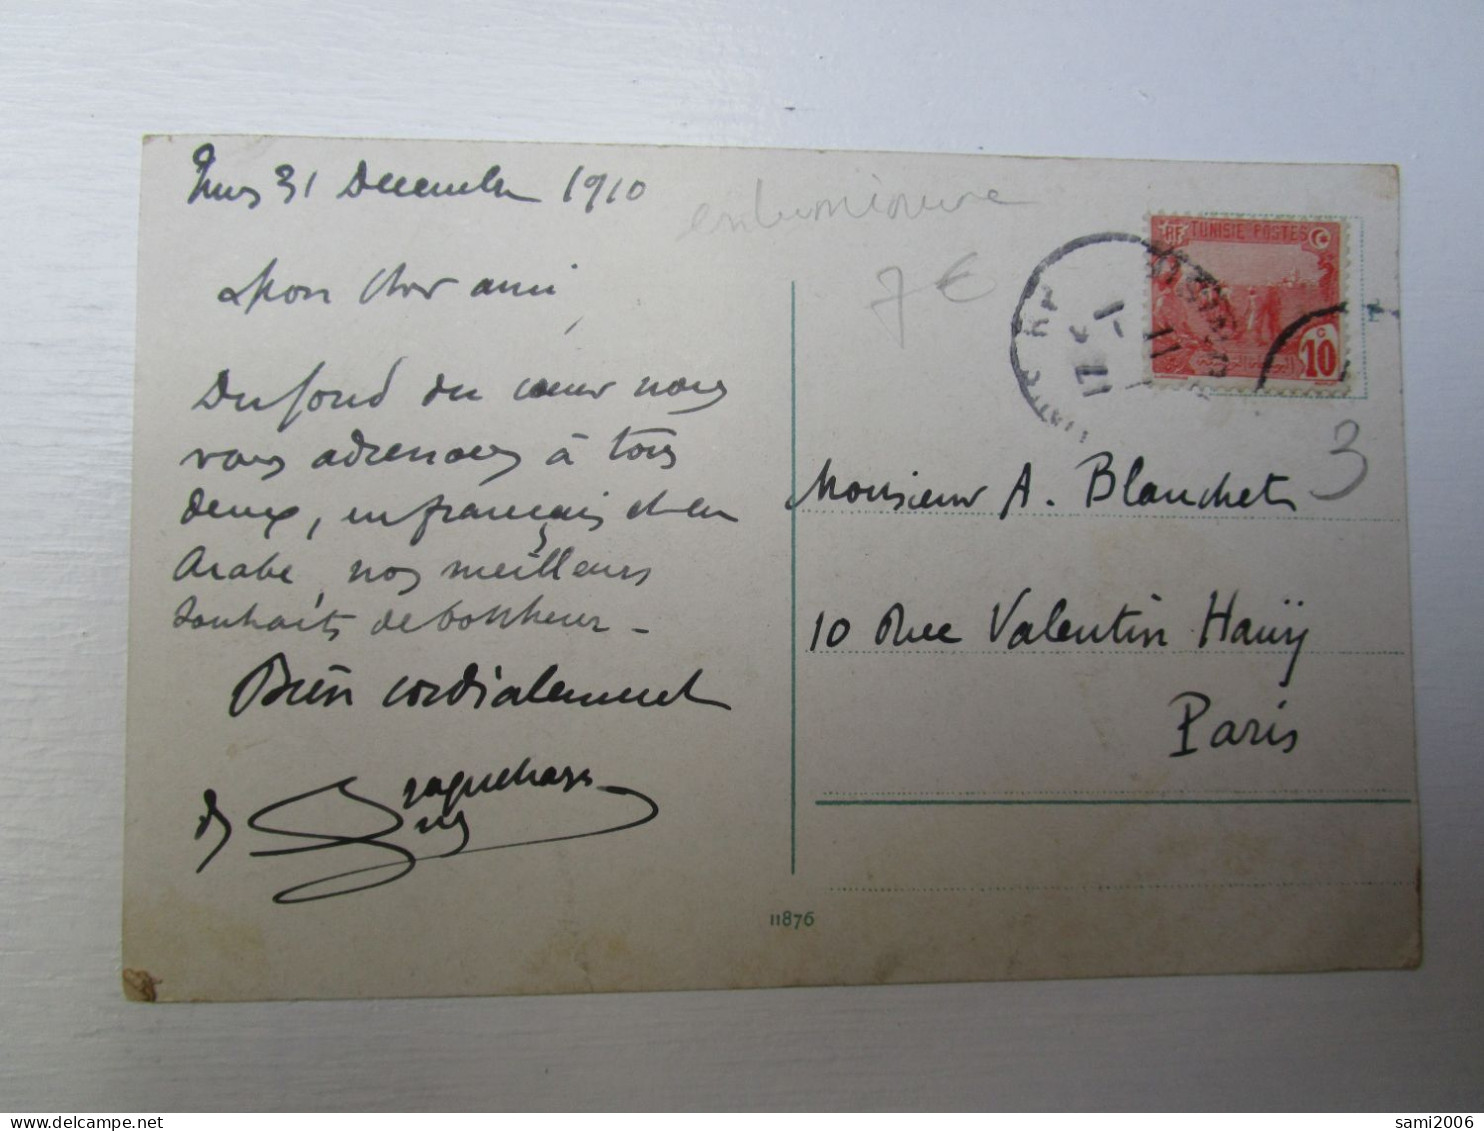 Tunis 31 Decembre 1910
Mon cher ami,
Du fond du cœur nous
vous adressons à tous
deux, en français et en
Arabe, nos meilleurs
souhaits de bonheur –
Bien cordialement
7 €
RF TUNISIE POSTES
10 c
11 -1
11
3
Monsieur A. Blanchet
10 Rue Valentin Haüy
Paris
11876
sami2006